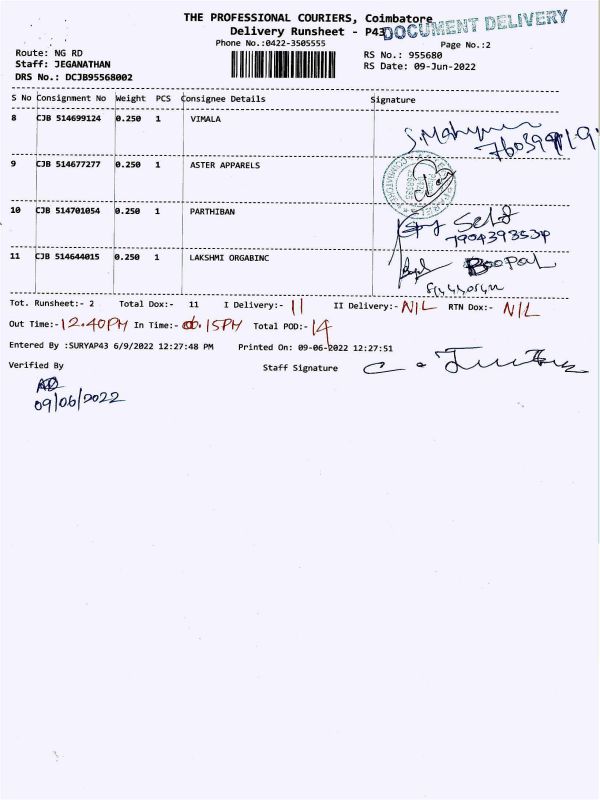 THE PROFESSIONAL COURIERS, Coimbatore
DOCUMENT DELIVERY
Delivery Runsheet - P43
Phone No.:0422-3505555
Page No.:2
Route: NG RD
RS No.: 955680
Staff: JEGANATHAN
RS Date: 09-Jun-2022
DRS No.: DCJB95568002
S No Consignment No Weight PCS Consignee Details Signature
8 CJB 514699124 0.250 1 VIMALA
9 CJB 514677277 0.250 1 ASTER APPARELS
10 CJB 514701054 0.250 1 PARTHIBAN Self
7904393534
11 CJB 514644015 0.250 1 LAKSHMI ORGABINC Boopal
Tot. Runsheet:- 2 Total Dox:- 11 I Delivery:- 11 II Delivery:- NIL RTN Dox:- NIL
Out Time:- 12.40PM In Time:- 15PM Total POD:- 14
Entered By :SURYAP43 6/9/2022 12:27:48 PM Printed On: 09-06-2022 12:27:51
Verified By Staff Signature
09/06/2022